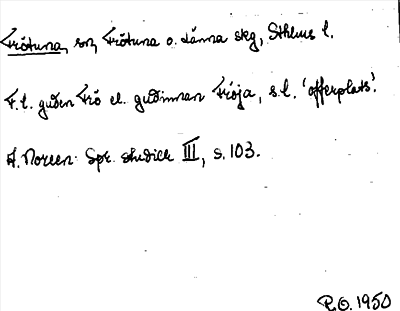 Frötuna, sn, Frötuna o. Länna skg, Sthlms l.
F.l. guden Frö el. gudinnan Fröja, s.l. 'offerplats'.
A. Noreen: Spr. studier III, s. 103.
R.O. 1950